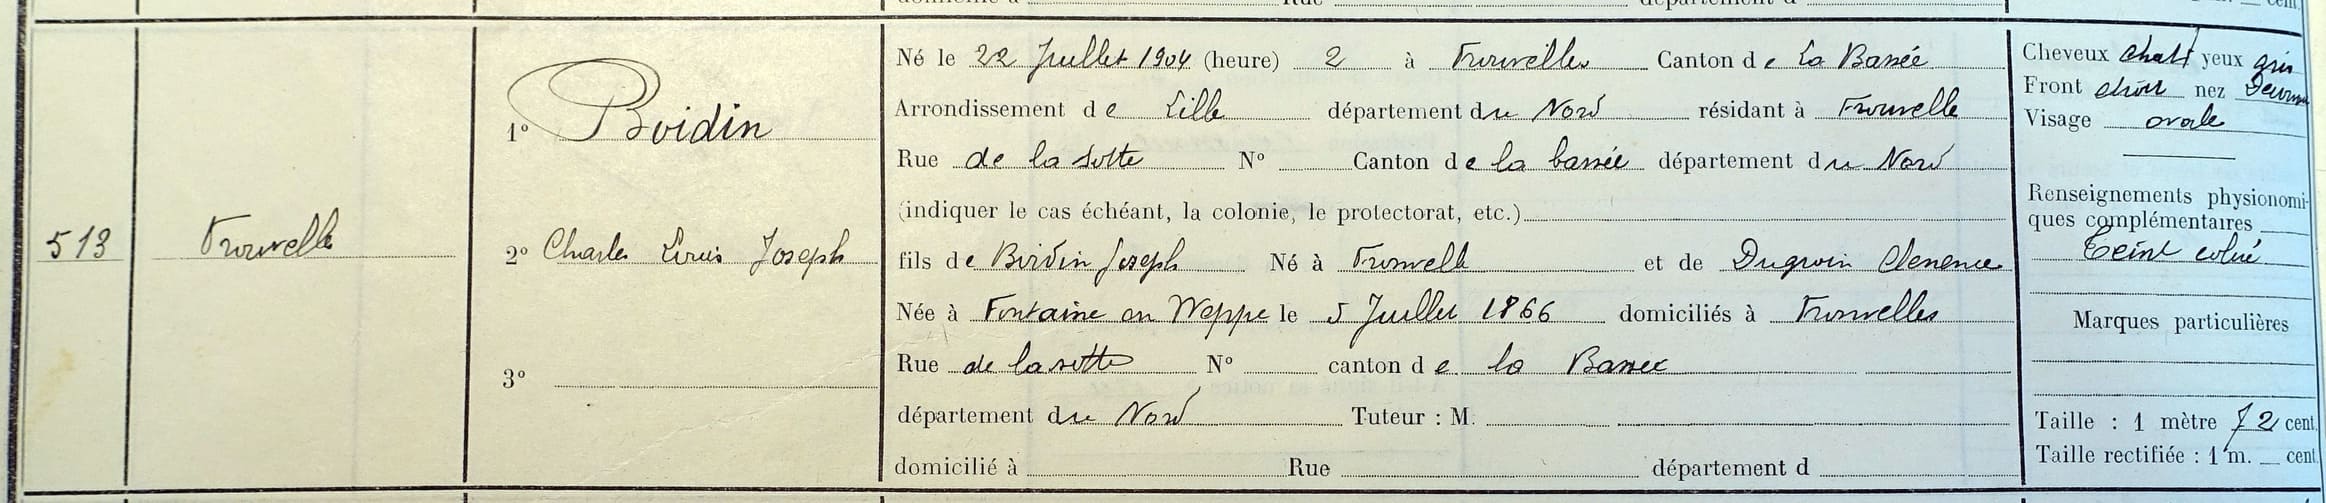 513
Fournelle
1° Boidin
2° Charles Louis Joseph
3°
Né le 22 Juillet 1904 (heure) 2 à Fournelles Canton de La Bassée
Arrondissement de Lille département du Nord résidant à Fournelle
Rue de la sotte N° Canton de la bassée département du Nord
(indiquer le cas échéant, la colonie, le protectorat, etc.)
fils de Boidin Joseph Né à Fournelle et de Dugroin Clemence
Née à Fontaine en Weppe le 5 Juillet 1866 domiciliés à Fournelles
Rue de la sotte N° canton de la Bassee
département du Nord Tuteur : M.
domicilié à Rue département d
Cheveux chatt yeux gris
Front nez
Visage ovale
Renseignements physionomi-
ques complémentaires
Teint coloré
Marques particulières
Taille : 1 mètre 72 cent.
Taille rectifiée : 1 m. cent.